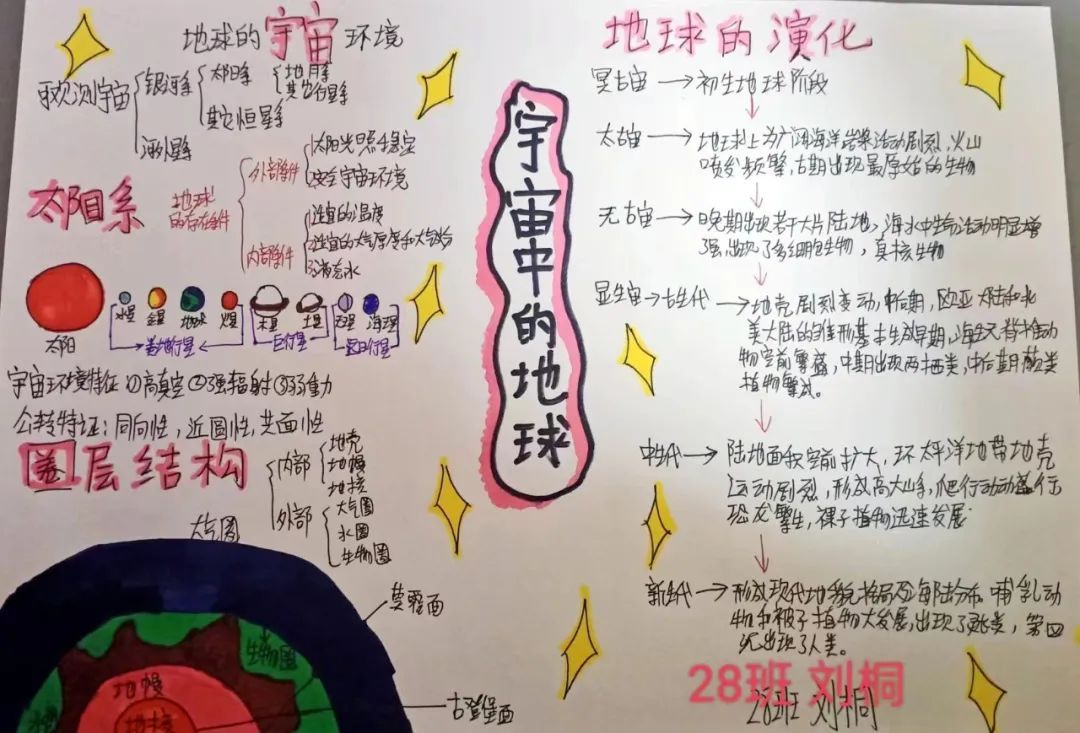 地球的宇宙环境
可观测宇宙
银河系
太阳系
地月系
其它行星系
其它恒星系
河外星系
太阳系
地球的存在条件
外部条件
太阳光照稳定
安全宇宙环境
内部条件
适宜的温度
适宜的大气厚度和大气成分
液态水
太阳
水星
金星
地球
火星
木星
土星
天王星
海王星
类地行星
巨行星
远日行星
宇宙环境特征 ①高真空 ②强辐射 ③弱重力
公转特征:同向性,近圆性,共面性
圈层结构
内部
地壳
地幔
地核
外部
大气圈
水圈
生物圈
大气圈
莫霍面
生物圈
地幔
地核
古登堡面
宇宙中的地球
地球的演化
冥古宙→初生地球阶段
太古宙→地球上为广阔海洋岩浆活动剧烈,火山
喷发频繁,古期出现最原始的生物
元古宙→晚期出现若干大片陆地,海水中生命活动明显增
强,出现了多细胞生物,真核生物
显生宙→古生代→地壳剧烈变动,中后期,欧亚大陆和北
美大陆的雏形基本生成早期,海生无脊椎动
物空前繁盛,中期出现两栖类,中后期蕨类
植物繁成。
中生代→陆地面积空前扩大,环太平洋地带地壳
运动剧烈,形成高大山系,爬行动动盛行
恐龙繁生,裸子植物迅速发展
新生代→形成现代地貌格局及海陆分布 哺乳动
物和被子植物大发展,出现了灵长类,第四
纪出现了人类。
28班 刘桐
28班 刘桐